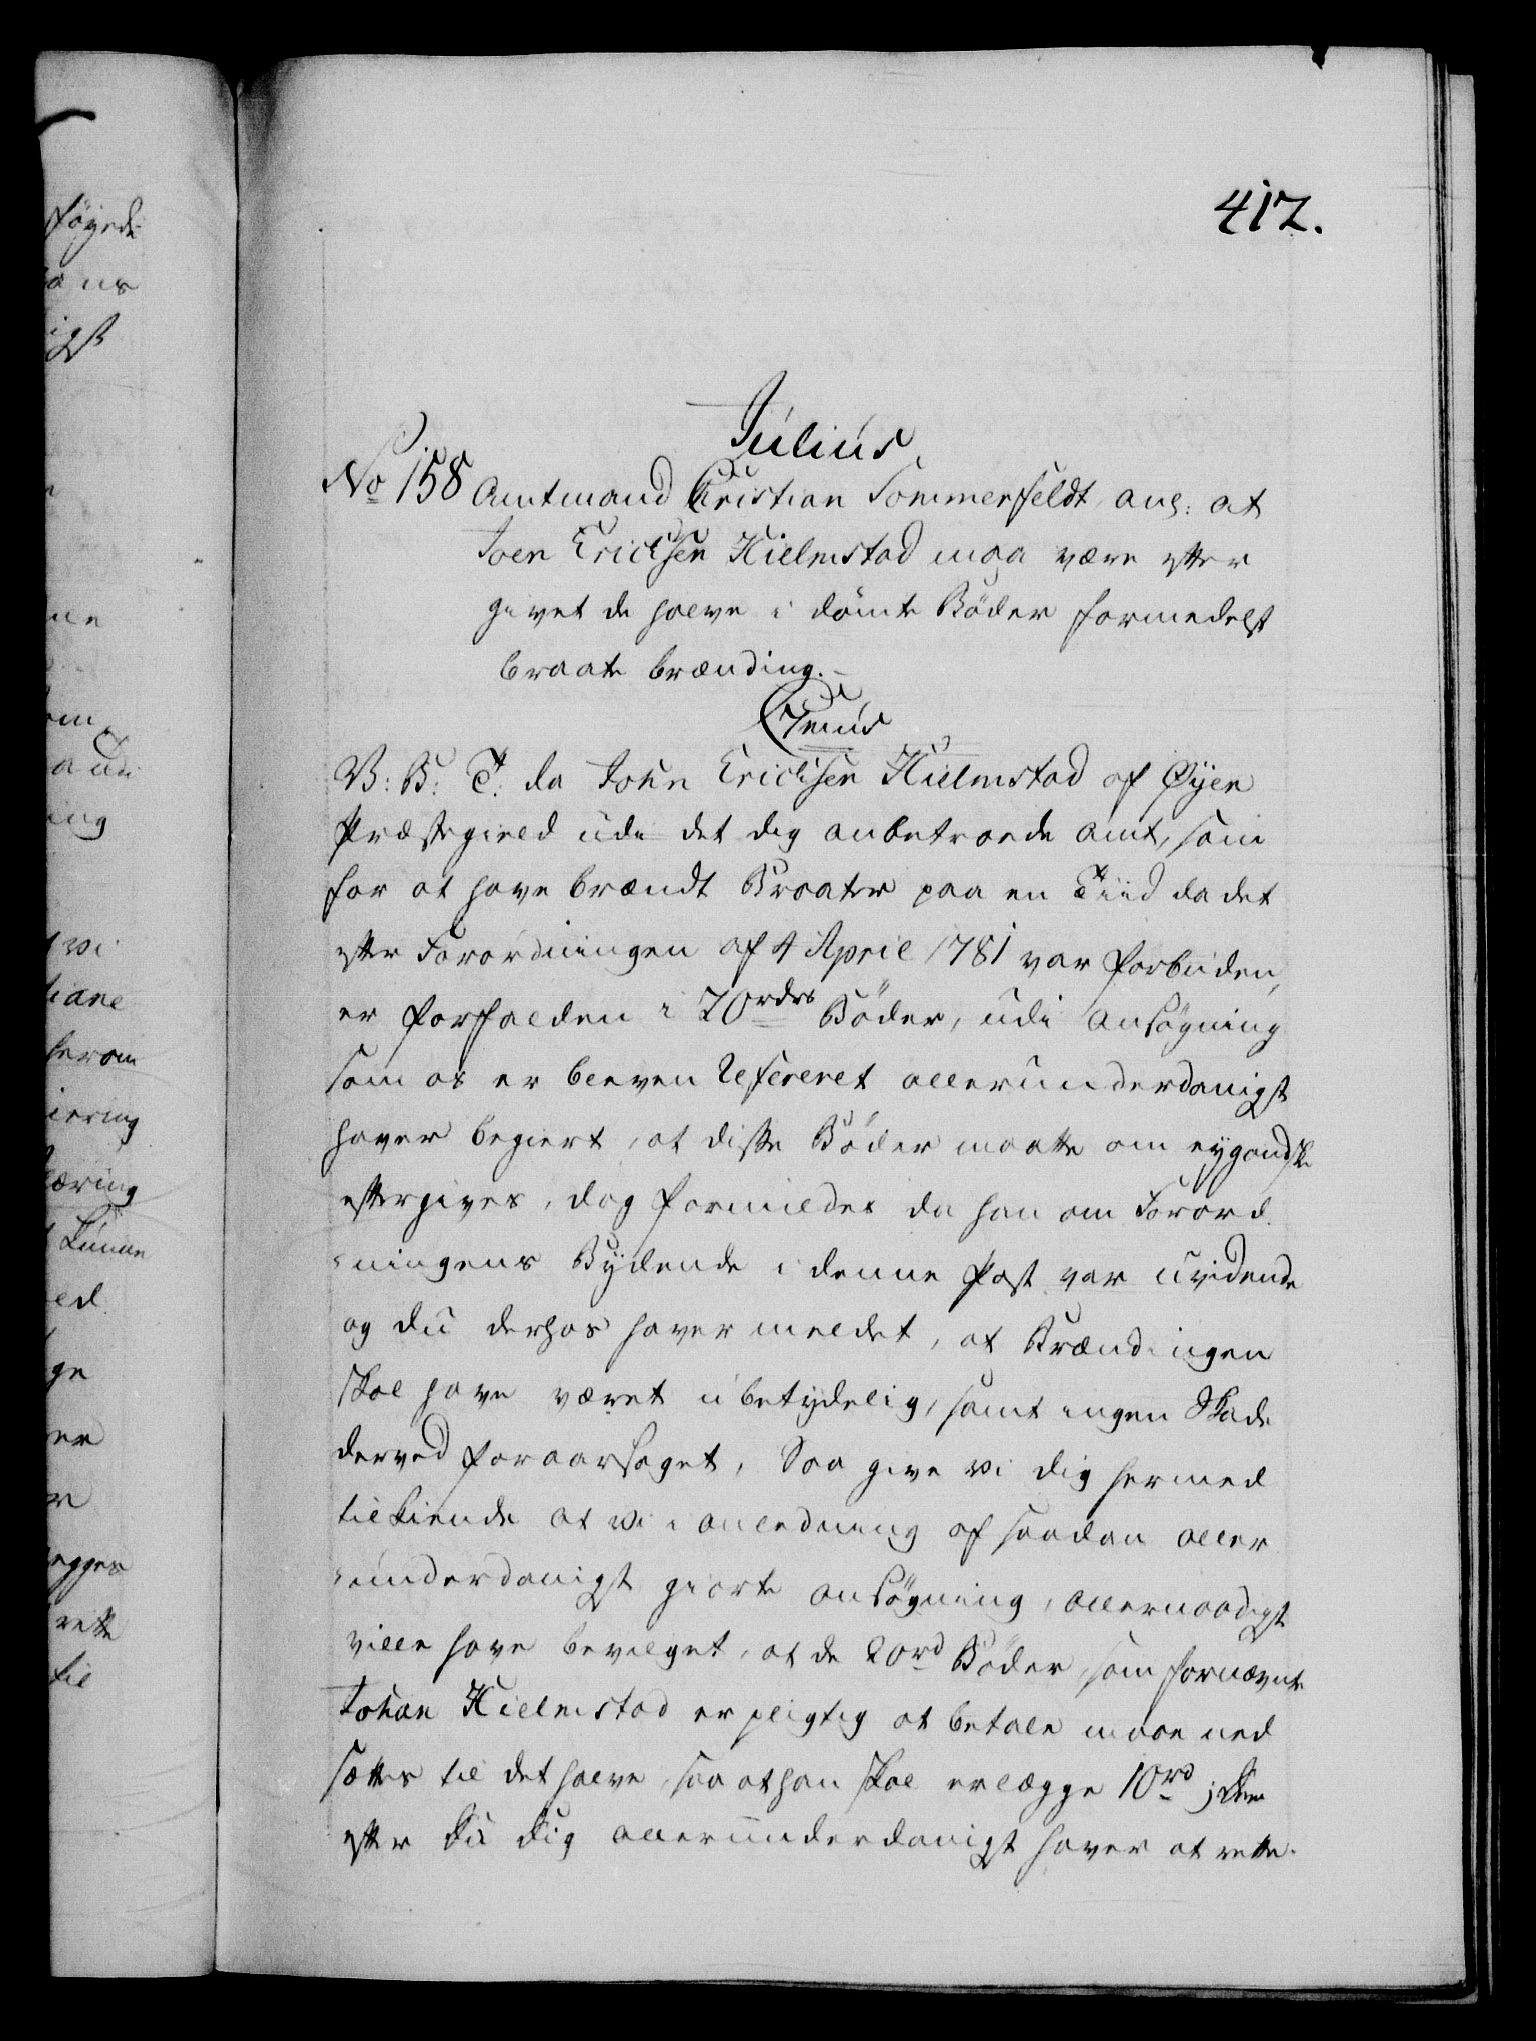 412.
Julius
No 158 Amtmand Christian Sommerfeldt, ang: at
Joen Erichsen Hielmstad maa være efter
givet de halve i dömte Böder formedelst
braate brænding.
Cejus
V: B: T: da John Erichsen Hielmstad af Øyer
Præstegield udi det dig anbetroede Amt, som
for at have brændt Braater paa en Tiid da det
efter Forordningen af 4 April 1781 var forbuden,
er forfalden i 20 rdrs Böder, udi Ansögning
som os er bleven Refereret allerunderdanigst
haver begiert, at disse Böder maatte om ey gandske
eftergives, dog formildes da han om Forord
-ningens Bydende i denne Post var uvidende
og du derhos haver meldet, at Brændingen
skal have været ubetydelig, samt ingen Skade
derved foraarsaget, Saa give vi dig hermed
tilkiende at vi i anledning af saadan aller
-underdanigst giorte ansögning, allernaadigst
ville have bevilget, at de 20 rd Böder, som fornævnte
Johan Hielmstad er pligtig at betale maae ned
sættes til det halve, saa at han skal erlægge 10 rd;
efter du dig allerunderdanigst haver at rette.
föyede
ans
igst
ne
em
ing
vi
iane
herom
iering
æring
kunne
ed
ge
er
r
egges
rette
til